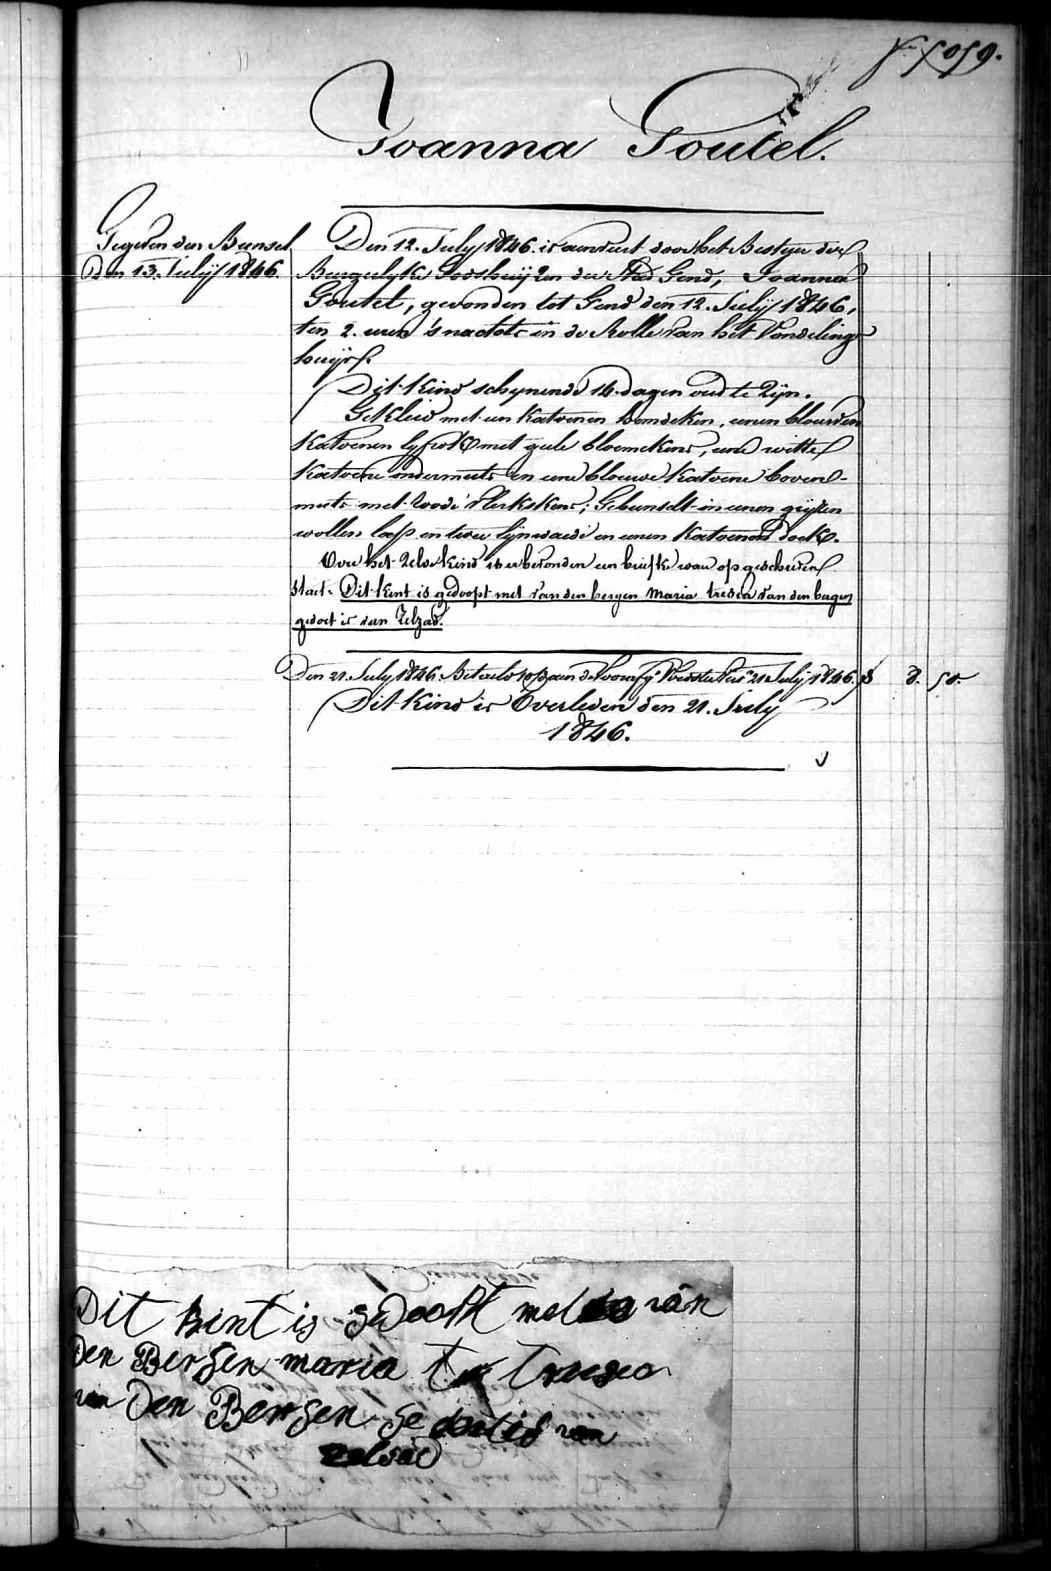 Joanna Goutel.
Gegeven den Bunsel
Den 13. Julij 1846.
Den 12. July 1846. is aenveert door het Bestuer der
Burgerlyke Godshuijzen der Stad Gend, Joanna
Goutel, gevonden tot Gend den 12. Julij 1846,
ten 2. uren 's nachts in de Rolle van het Vondelings
huijs.
Dit kind schynende 14 dagen oud te zijn.
Gekleed met een katoenen hemdeken, eenen blauwen
katoenen lyfrok met geele bloemekens, eene witte
katoene ondermuts en eene blauwe katoene boven-
muts met roode vlerkskens; Gebunselt in eenen grijzen
wollen lap en twee lijnwaede en eenen katoenen doek.
Over het zelve kind is er bevonden een briefke waer op geschreven
staet: Dit kint is gedoopt met van den bergen maria tresea van den bergen
gedoet is van Zelzad.
Den 21. July 1846. Betaeld 21 July 1846. 8. 50.
Dit kind is Overleden den 21. July
1846.
Dit kint is gedoopt met van
Den Bergen maria tresea
van Den Bergen gedoet is van
zelsad